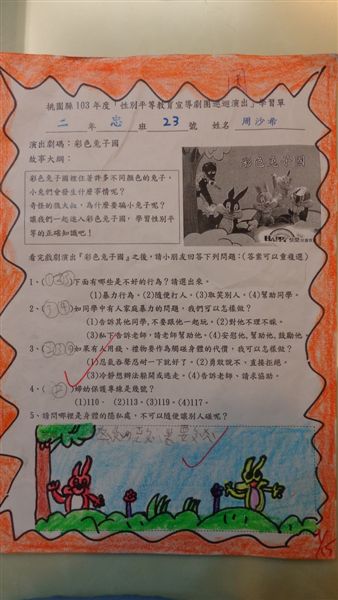 桃園縣103年度「性別平等教育宣導劇團巡迴演出」學習單
二 年 忠 班 23 號 姓名 周沙希
演出劇碼：彩色兔子國
故事大綱：
彩色兔子國裡住著許多不同顏色的兔子。
小兔們會發生什麼事情呢？
奇怪的狐大叔，為什麼要騙小兔子呢？
讓我們一起進入彩色兔子國，學習性別平
等的正確知識吧！
彩色兔子國
看完戲劇演出『彩色兔子國』之後，請小朋友回答下列問題：(答案可以重複選)
1、(123)下面有哪些是不好的行為？請選出來。
(1)暴力行為。(2)隨便打人。(3)取笑別人。(4)幫助同學。
2、(34)如果同學中有人家庭暴力的問題，我們可以怎樣做？
(1)告訴其他同學，不要跟他一起玩。(2)對他不理不睬。
(3)私下告訴老師，請老師幫助他。(4)安慰他，幫助他，鼓勵他。
3、(234)如果有人用錢、禮物要作為觸碰身體的代價，我可以怎樣做？
(1)忍氣吞聲忍耐一下就好了。(2)勇敢說不，直接拒絕。
(3)冷靜想辦法躲開或逃走。(4)告訴老師、請求協助。
4、( )婦幼保護專線是幾號？
(1)110。(2)113。(3)119。(4)117。
5、請問哪裡是身體的隱私處，不可以隨便讓別人碰呢？